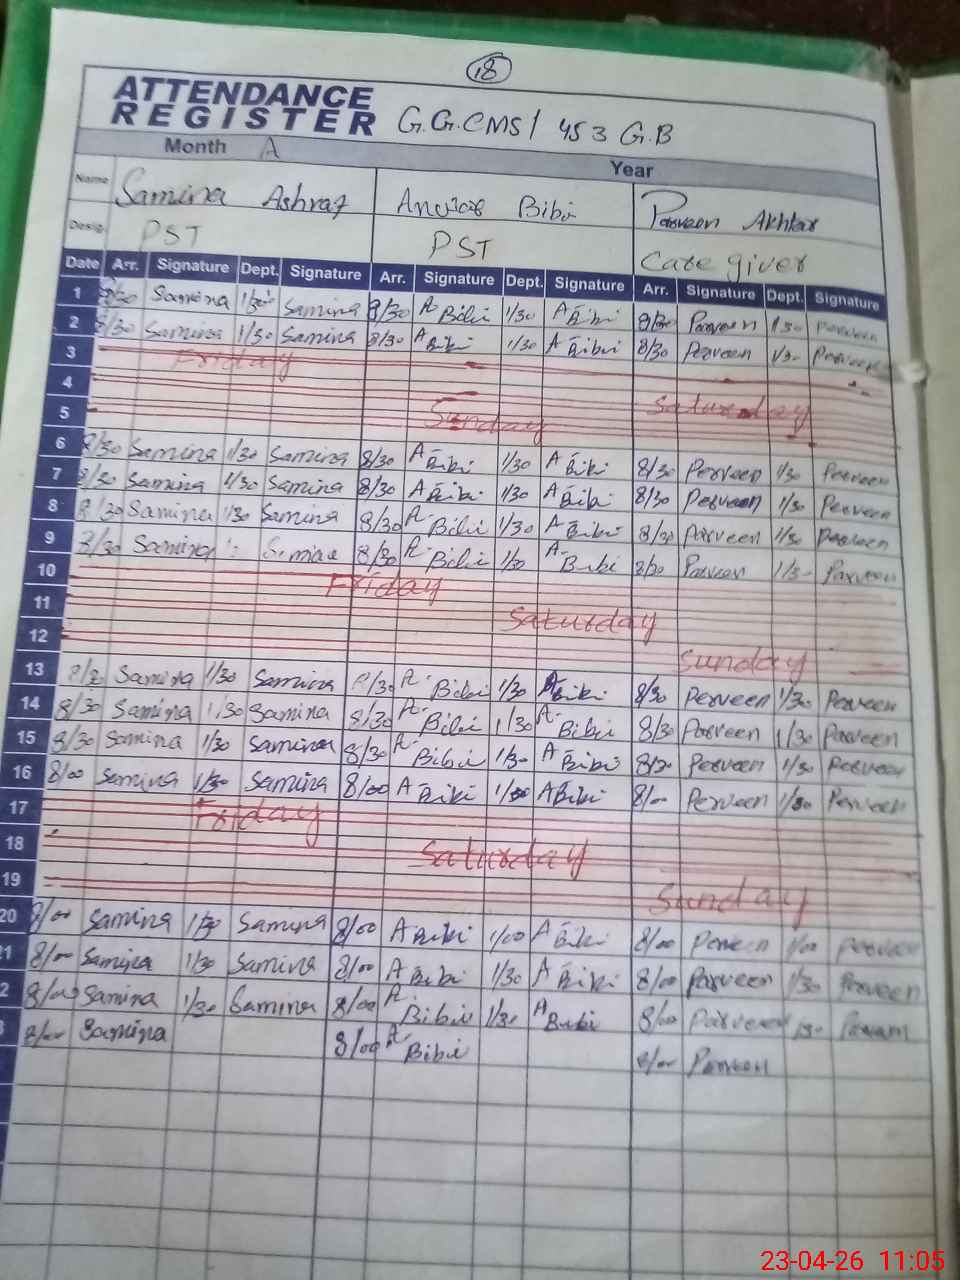 18
ATTENDANCE
REGISTER G.G.CMS/ 453 G.B
Month A Year
Name Samina Ashraf Bibi Parveen Akhtar
Desig. PST PST Care giver
Date Arr. Signature Dept. Signature Arr. Signature Dept. Signature Arr. Signature Dept. Signature
1 8/30 Samina 1/30 Samina 8/30 A Bibi 1/30 A Bibi 8/30 Parveen 1/30 Parveen
2 8/30 Samina 1/30 Samina 8/30 A Bibi 1/30 A Bibi 8/30 Perveen 1/30 Perveen
3 Friday
4 Saturday
5 Sunday
6 8/30 Samina 1/30 Samina 8/30 A Bibi 1/30 A Bibi 8/30 Perveen 1/30 Perveen
7 8/30 Samina 1/30 Samina 8/30 A Bibi 1/30 A Bibi 8/30 Perveen 1/30 Perveen
8 8/30 Samina 1/30 Samina 8/30 A. Bibi 1/30 A Bibi 8/30 Parveen 1/30 Parveen
9 8/30 Samina 8/30 A. Bibi 1/30 A. Bibi 8/30 Parveen 1/30 Parveen
10 Friday
11 Saturday
12 Sunday
13 8/30 Samina 1/30 Samina 8/30 A. Bibi 1/30 A Bibi 8/30 Perveen 1/30 Perveen
14 8/30 Samina 1/30 Samina 8/30 A. Bibi 1/30 A. Bibi 8/30 Parveen 1/30 Parveen
15 8/30 Samina 1/30 Samina 8/30 A. Bibi 1/30 A Bibi 8/30 Perveen 1/30 Perveen
16 8/00 Samina 1/30 Samina 8/00 A Bibi A Bibi 8/00 Perveen 1/30 Perveen
17 Friday
18 Saturday
19 Sunday
20 8/00 Samina 1/30 Samina 8/00 A Bibi 1/00 A Bibi 8/00 Perveen 1/00 Perveen
1 8/00 Samina 1/30 Samina 8/00 A Bibi 1/30 A Bibi 8/00 Parveen 1/30 Parveen
2 8/00 Samina 1/30 Samina 8/00 A. Bibi 1/30 A Bibi 8/00 Parveen
3 8/00 Samina 8/00 A. Bibi 8/00 Parveen
23-04-26 11:05